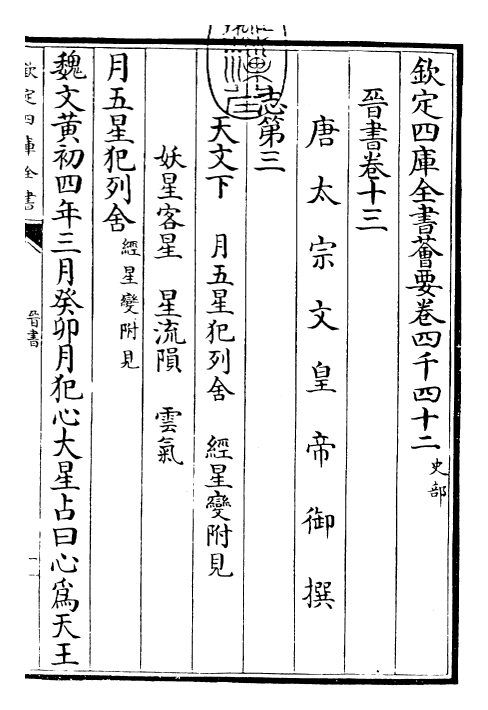 欽定四庫全書薈要卷四千四十二 史部
晉書卷十三
唐太宗文皇帝御撰
志第三
天文下 月五星犯列舍 經星變附見
妖星客星 星流隕 雲氣
月五星犯列舍 經星變附見
魏文黃初四年三月癸卯月犯心大星占曰心爲天王
欽定四庫全書
晉書
一